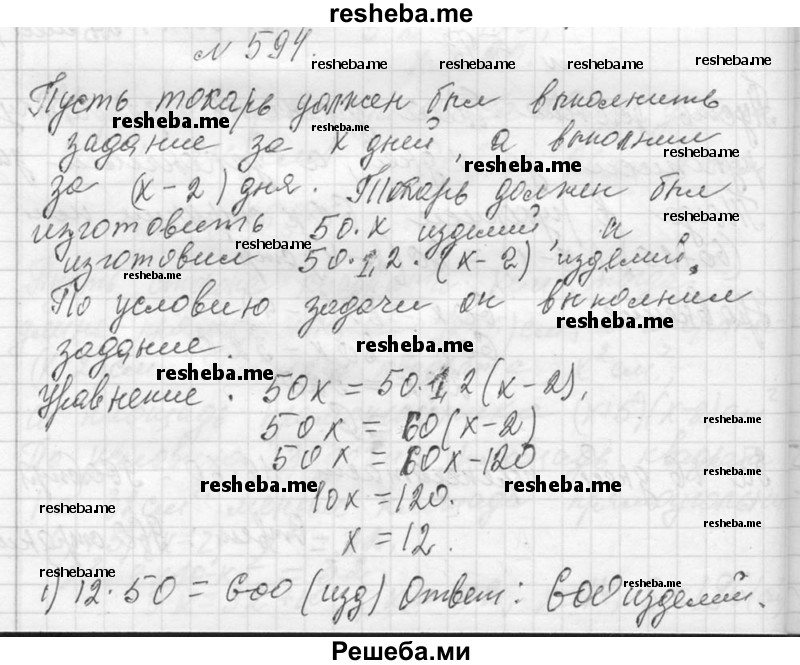 resheba.me
№ 594.
resheba.me resheba.me resheba.me resheba.me
Пусть токарь должен был выполнить
resheba.me resheba.me
задание за x дней, а выполнил
resheba.me resheba.me
за (x-2) дня. Токарь должен был
изготовить 50·x изделий, а
resheba.me resheba.me
изготовил 50·1,2·(x-2) изделий.
resheba.me
По условию задачи он выполнил
resheba.me
задание.
resheba.me
resheba.me
Уравнение: 50x = 50·1,2(x-2),
50x = 60(x-2)
resheba.me
50x = 60x-120
resheba.me resheba.me resheba.me
10x = 120.
resheba.me
x = 12.
resheba.me
resheba.me
1) 12·50 = 600 (изд) Ответ: 600 изделий.
resheba.me
Решеба.ми